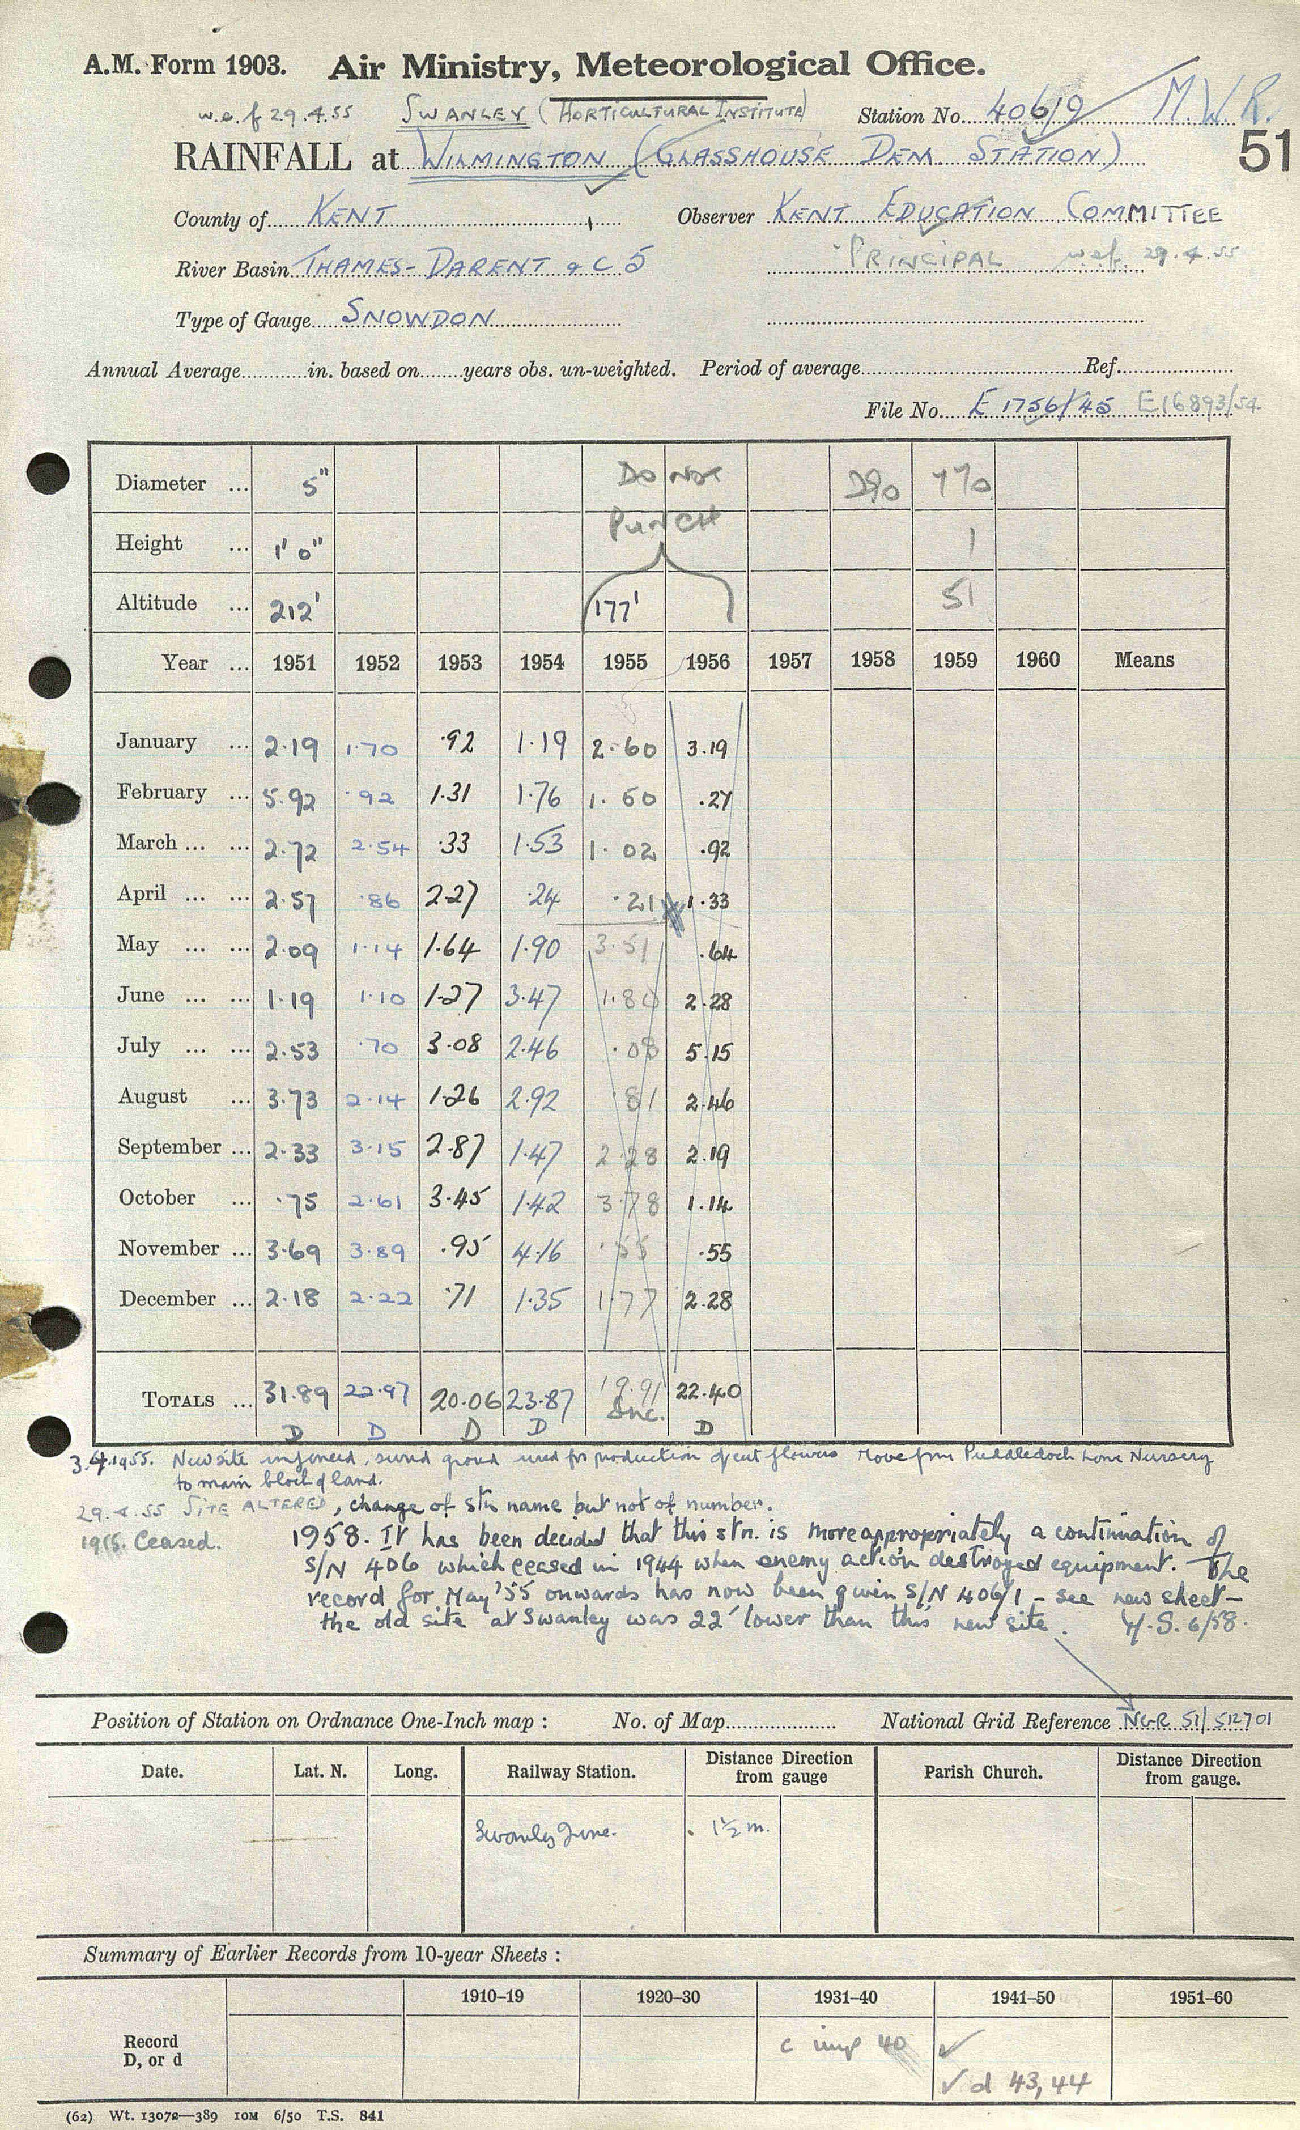 A.M. Form 1903. Air Ministry, Meteorological Office.
w.e.f 29.4.55 SWANLEY (HORTICULTURAL INSTITUTE) Station No. 406/9 M.W.R.
RAINFALL at WILMINGTON (GLASSHOUSE DEM STATION) 51
County of KENT Observer KENT EDUCATION COMMITTEE
River Basin THAMES-DARENT & C 5 PRINCIPAL w.e.f. 29.4.55
Type of Gauge SNOWDON
Annual Average in. based on years obs. un-weighted. Period of average Ref.
File No. E 1756/45 E16893/54
Diameter ... 5" DO NOT 290 770
Height ... 1' 0" PUNCH 1
Altitude ... 212' 177' 51
Year ... 1951 1952 1953 1954 1955 1956 1957 1958 1959 1960 Means
January ... 2.19 1.70 .92 1.19 2.60 3.19
February ... 5.92 .92 1.31 1.76 1.60 .27
March ... ... 2.72 2.54 .33 1.53 1.02 .92
April ... ... 2.57 .86 2.27 .24 .21 1.33
May ... ... 2.09 1.14 1.64 1.90 3.51 .64
June ... ... 1.19 1.10 1.27 3.47 1.80 2.28
July ... ... 2.53 .70 3.08 2.46 .08 5.15
August ... 3.73 2.14 1.26 2.92 .81 2.46
September ... 2.33 3.15 2.87 1.47 2.28 2.19
October ... .75 2.61 3.45 1.42 3.78 1.14
November ... 3.69 3.89 .95 4.16 .55 .55
December ... 2.18 2.22 .71 1.35 1.77 2.28
TOTALS ... 31.89 22.97 20.06 23.87 19.91 22.40
D D D D Inc. D
3.4.1955. New site inferred, ground used for production of cut flowers Move from Puddledock Lane Nursery
to main block of land.
29.4.55 SITE ALTERED, change of stn name but not of number.
1956. Ceased. 1958. It has been decided that this stn. is more appropriately a continuation of
S/N 406 which ceased in 1944 when enemy action destroyed equipment. The
record for May '55 onwards has now been given S/N 406/1 - see new sheet -
the old site at Swanley was 22' lower than this new site. H.S. 6/58.
Position of Station on Ordnance One-Inch map : No. of Map National Grid Reference NGR 51/512701
Date. Lat. N. Long. Railway Station. Distance Direction from gauge Parish Church. Distance Direction from gauge.
Swanley Junc. 1½ m.
Summary of Earlier Records from 10-year Sheets :
1910–19 1920–30 1931–40 1941–50 1951–60
Record c imp 40 ✓
D, or d ✓ d 43, 44
(62) Wt. 13072—389 10M 6/50 T.S. 841